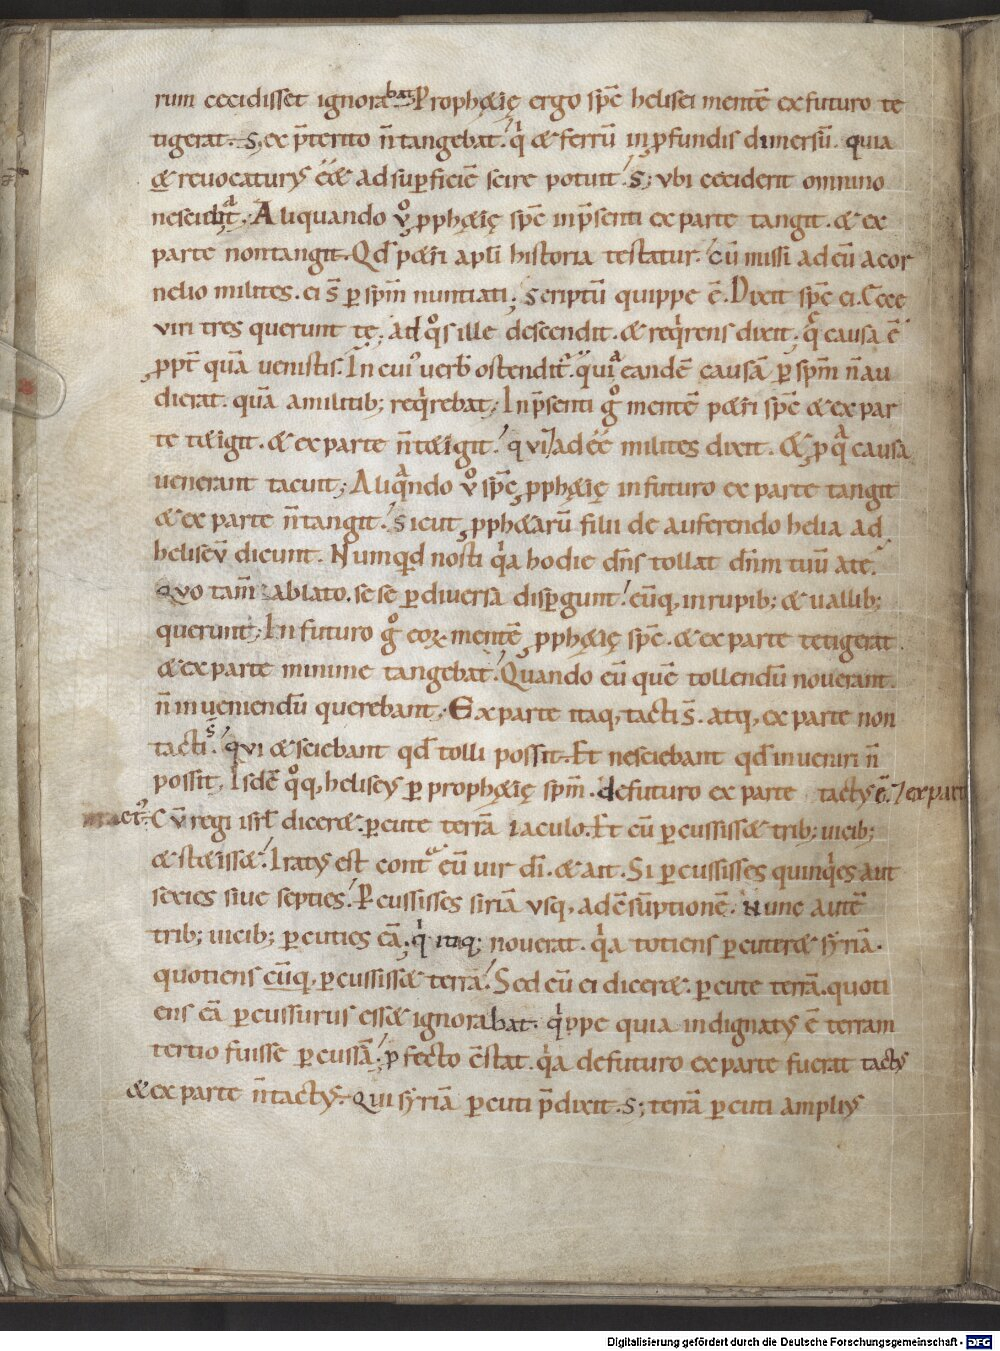 rum cecidisset ignorabat. Prophetię ergo spc̄ helisei mentē ex futuro te
tigerat. S; ex p̄terito n̄ tangebat. q̇ & ferrū in ꝓfundis dimersū. quia
& reuocaturꝰ eē& ad suꝑficiē scire potuit. S; ubi ceciderit omnino
nesciebat. Aliquando v̊ ꝓph&ię spc̄ in p̄senti ex parte tangit. & ex
parte non tangit. Qd̄ p&ri apl̄i historia testatur. cū missi ad eū a cor
nelio milites. ei s̄ ꝑ spm̄ nuntiati; Scriptū quippe ē. Dixit spc̄ ei. Ecce
viri tres querunt te; ad q̊s ille descendit. & reqͥrens dixit; q̄ causa ē
ꝓpt̄ quā uenistis. In cuiꝰ uerb̄ ostendit᷑. quia eandē causā ꝑ spm̄ n̄ au
dierat. quā a militib; reqͥrebat; In p̄senti g̊ mentē p&ri spc̄ & ex par
te t&igit. & ex parte n̄ t&igit. qui adeē milites dixit. & ꝓ qͣ causa
uenerant tacuit; Aliqͣndo v̊ spc̄ ꝓph&ię in futuro ex parte tangit
& ex parte n̄ tangit. Sicut ꝓph&arū filii de auferendo helia ad
heliseū dicunt. Numqͥd nosti qͥa hodie dn̄s tollat dn̄m tuū a te.
Quo tam̄ ablato. sese ꝑ diuersa disꝑgunt. eūq, in rupib; & uallib;
querunt; In futuro g̊ eoꝝ mentē ꝓph&ię spc̄. & ex parte tetigerat.
& ex parte minime tangebat. Quando eū quē tollendū nouerant.
n̄ inueniendū querebant; Ex parte itaq, tacti s̄. atq, ex parte non
tacti s̄. qui & sciebant qd̄ tolli possit. Et nesciebant qd̄ inueniri n̄
possit; Isdē q̊q, heliseꝰ ꝑ proph&ię spm̄. de futuro ex parte tactꝰ ē. ⁊ ex part
intactꝰ. Cū regi isrl̄ dicer&. ꝑcute terrā iaculo. Et cū ꝑcussiss& trib; uicib;
& st&iss&. Iratꝰ est contͣ eū uir dī. & ait. Si ꝑcussisses quinqͥes aut
sexies siue septies. Ꝑcussisses siriā usq, ad c̄sūptionē. Nunc autē
trib; uicib; ꝑcuties eā. qͥ itaq; nouerat. qͥa totiens ꝑcuter& syriā.
quotiens cūq, ꝑcussiss& terrā. Sed cū ei dicer&. ꝑcute terrā. quoti
ens eā ꝑcussurus ess& ignorabat. qͥppe quia indignatꝰ ē terram
tertio fuisse ꝑcussā. ꝓfecto c̄stat. qͥa de futuro ex parte fuerat tactꝰ
& ex parte n̄ tactꝰ. Qui syriā ꝑcuti p̄dixit. S; terrā ꝑcuti ampliꝰ
Digitalisierung gefördert durch die Deutsche Forschungsgemeinschaft - DFG